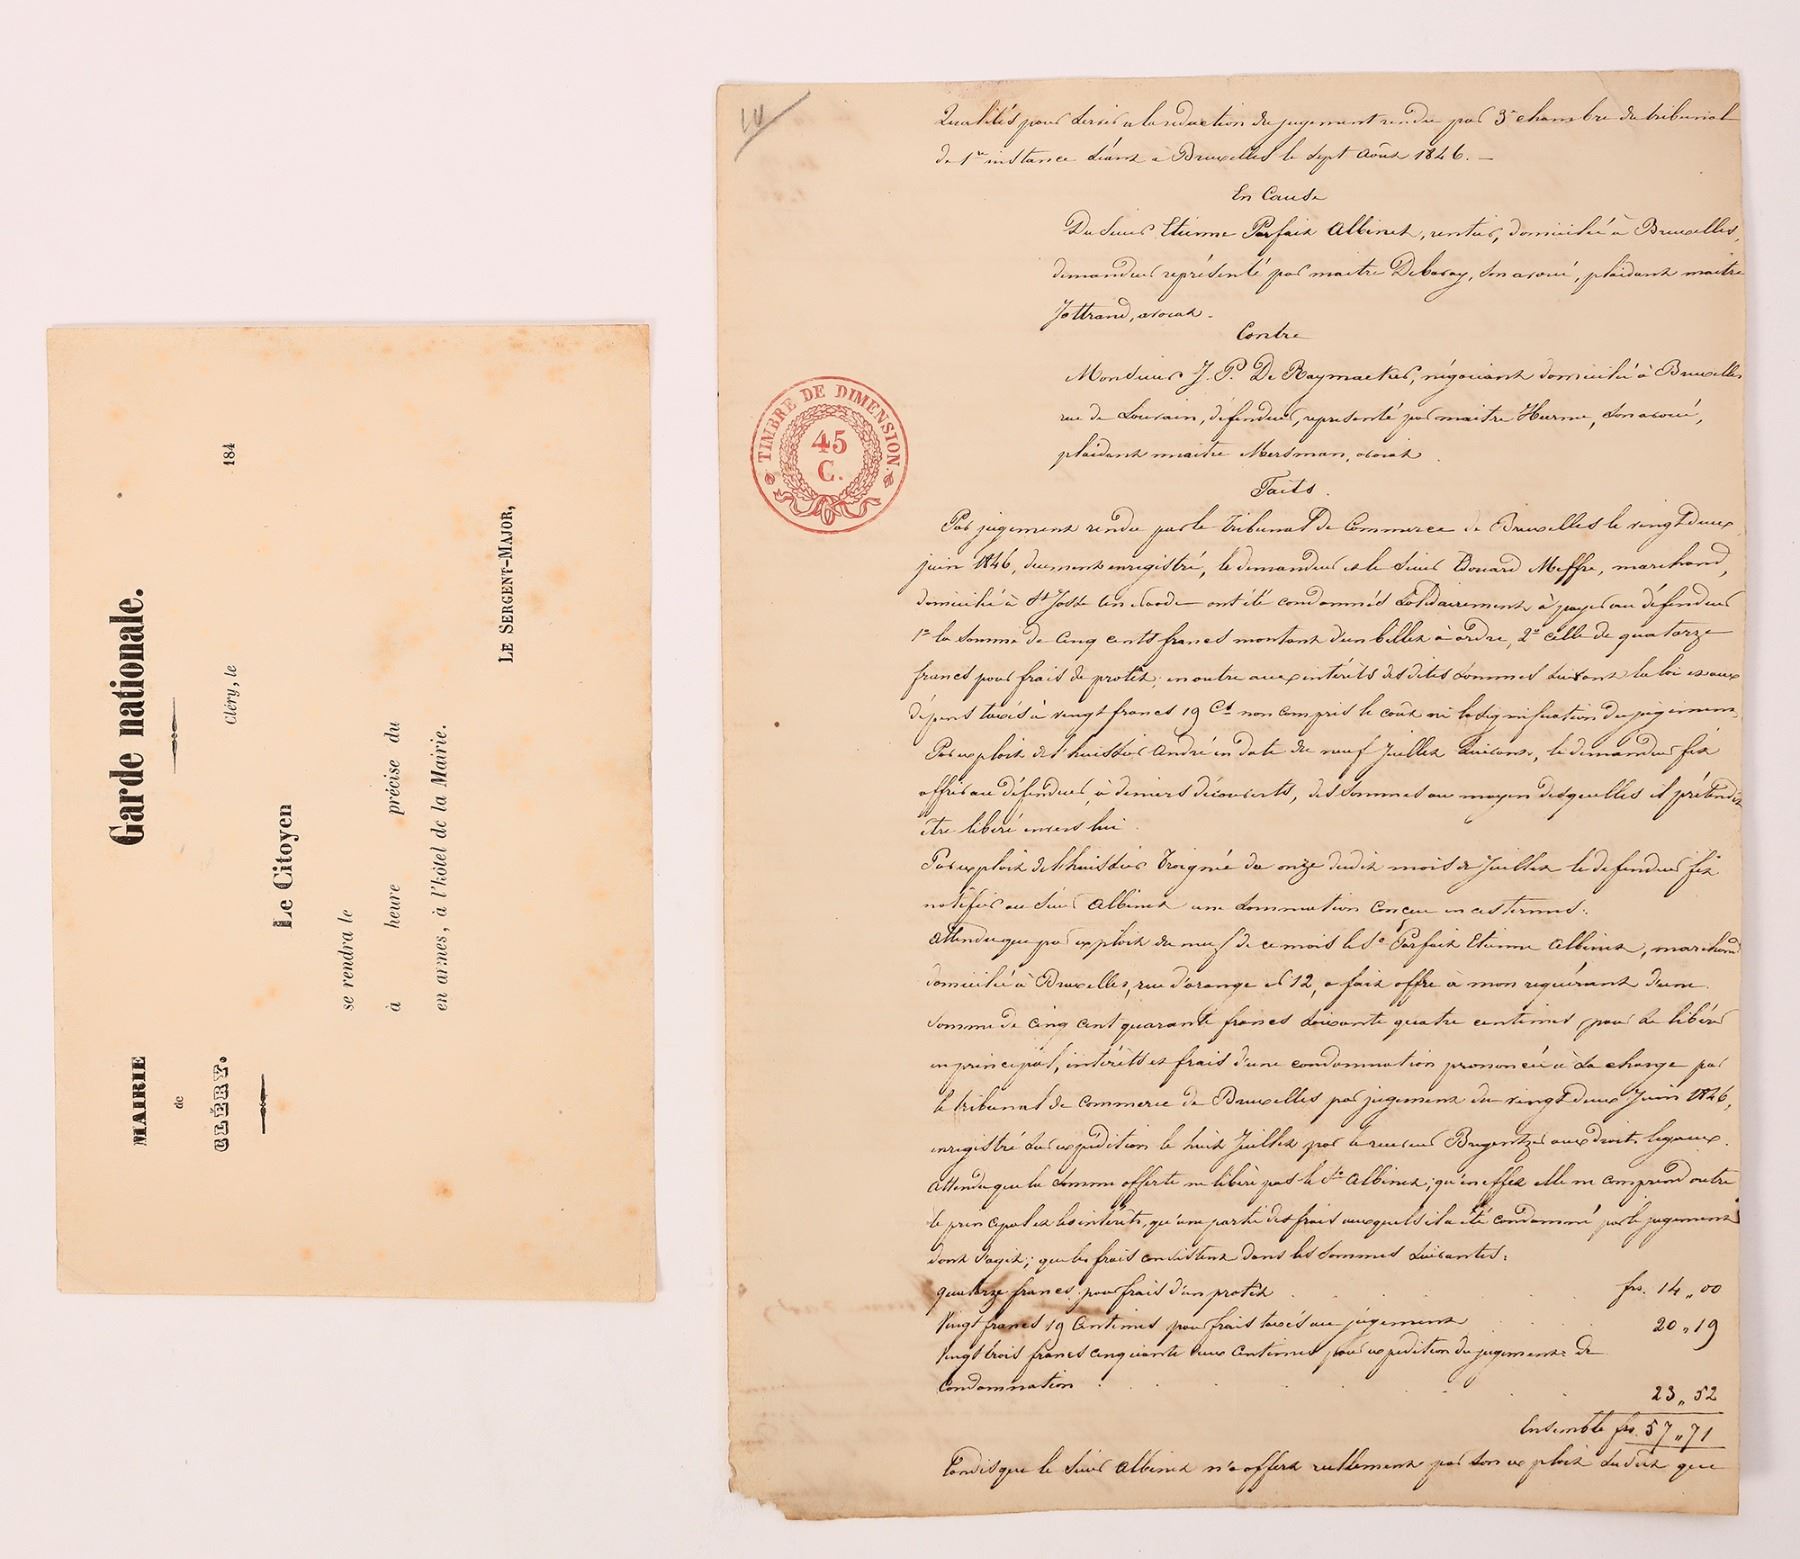 MAIRIE
de
CLÉRY.
Garde nationale.
Cléry, le 184
Le Citoyen
se rendra le
à heure précise du
en armes, à l'hôtel de la Mairie.
LE SERGENT-MAJOR,
TIMBRE DE DIMENSION.
45
C.
Qualités pour servir a la rédaction du jugement rendu par 3e chambre du tribunal
de 1re instance séant à Bruxelles le sept Août 1846. —
En Cause
Du sieur Etienne Parfait Albinet, rentier, domicilié à Bruxelles,
demandeur représenté par maitre Debavay, son avoué, plaidant maitre
Jottrand, avocat.
Contre
Monsieur J. P. De Raymacker, négociant domicilié à Bruxelles
rue de Louvain, défendeur, représenté par maitre Hurme, son avoué,
plaidant maitre Mersman, avocat.
Faits.
Par jugement rendu par le Tribunal de Commerce de Bruxelles le vingt deux
juin 1846, duement enregistré, le demandeur et le sieur Edouard Meffre, marchand,
domicilié à St Josse ten noode ont été condamnés solidairement à payer au défendeur
1o la somme de cinq cents francs montant d'un billet à ordre, 2o celle de quatorze
francs pour frais de protêt; en outre aux intérêts des dites sommes suivant la loi et aux
dépens taxés à vingt francs 19 Cs non compris le coût ni la signification du jugement.
Par exploit de l'huissier André en date du neuf Juillet suivant, le demandeur fit
offrir au défendeur, à deniers découverts, des sommes au moyen desquelles il prétendit
être libéré envers lui.
Par exploit de l'huissier Troigné du onze dudit mois de Juillet le defendeur fit
notifier au sieur Albinet une sommation conçue en ces termes:
Attendu que par exploit du neuf de ce mois le Sr Parfait Etienne Albinet, marchand
domicilié à Bruxelles, rue d'orange no 12, a fait offre à mon requérant d'une
somme de cinq cent quarante francs soixante quatre centimes, pour se libérer
en principal, intérêts et frais d'une condamnation prononcée à sa charge par
le tribunal de commerce de Bruxelles par jugement du vingt deux Juin 1846,
enregistré sur expédition le huit Juillet par le receveur Bugentzer aux droits legaux.
Attendu que la somme offerte ne libère pas le Sr Albinet; qu'en effet elle ne comprend outre
le principal et les intérêts, qu'une partie des frais auxquels il a été condamné par le jugement
dont s'agit; que les frais consistent dans les sommes suivantes:
quatorze francs pour frais d'un protêt frs. 14,,00
Vingt francs 19 Centimes pour frais taxés au jugement 20,,19
Vingt trois francs cinquante deux Centimes pour expédition du jugement de
condamnation 23,,52
Ensemble frs. 57,,71
Tandis que le sieur Albinet n'a offert réellement par son exploit susdit que